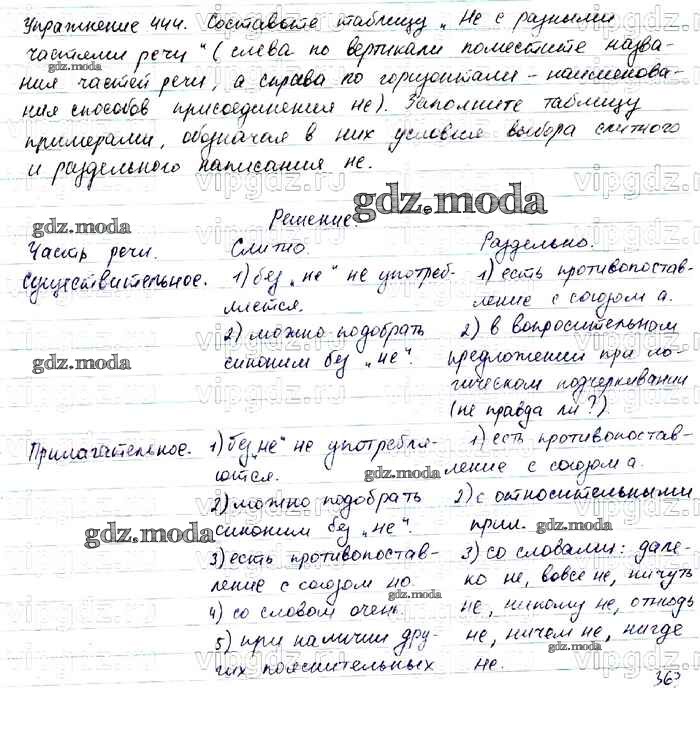 Упражнение 444. Составьте таблицу „Не с разными
частями речи“ (слева по вертикали поместите назва-
ния частей речи, а справа по горизонтали – наименова-
ния способов присоединения не). Заполните таблицу
примерами, обозначая в них условия выбора слитного
и раздельного написания не.
Решение.
Часть речи. Слитно. Раздельно.
Существительное. 1) без „не“ не употреб- 1) есть противопостав-
ляется. ление с союзом а.
2) можно подобрать 2) в вопросительном
синоним без „не“. предложении при ло-
гическом подчеркивании
(не правда ли?).
Прилагательное. 1) без „не“ не употребля- 1) есть противопостав-
ются. ление с союзом а.
2) можно подобрать 2) с относительными
синоним без „не“. прил.
3) есть противопостав- 3) со словами: дале-
ление с союзом но ко не, вовсе не, ничуть
4) со словом очень. не, никому не, отнюдь
5) при наличии дру- не, ничем не, нигде
гих пояснительных не.
363
gdz.moda
gdz.moda
gdz.moda
gdz.moda
gdz.moda
gdz.moda
gdz.moda
gdz.moda
vipgdz.ru